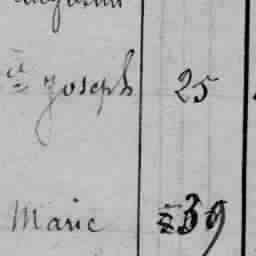 Joseph 25
Marie 39